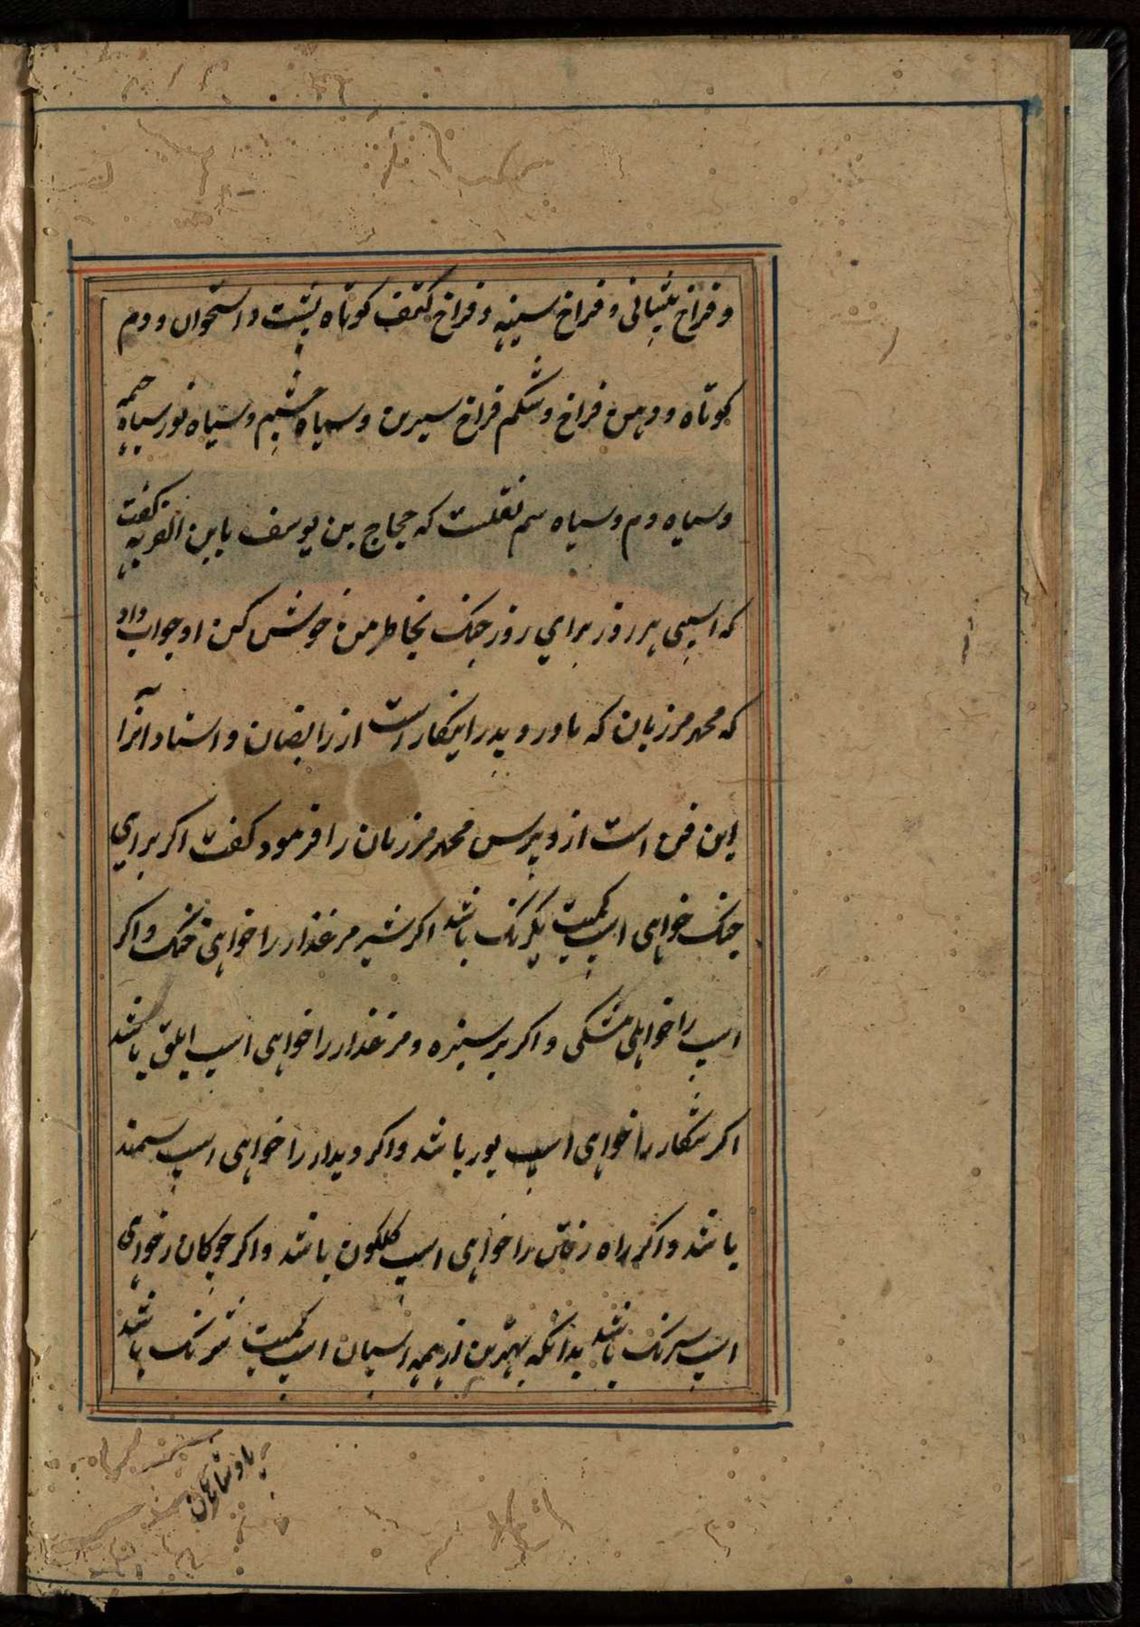 و فراخ پیشانی و فراخ سینه و فراخ کتف کوتاه پشت و استخوان و دم
کوتاه و دهن فراخ و شکم فراخ سیرین و سیاه چشم و سیاه نور سیاه
وسیاه دم وسیاه سم نقلست که حجاج بن یوسف بابن القریه گفت
که اسپی هر روز برای روز جنک بخاطر من خوش کن او جواب داد
که محمد مرزبان که ماور و پدر اینکار است از رایضان و استاد آنرا
این فن است از و بپرس محمد مرزبان را فرمود گفت اکر برای
جنک خواهی اسپ کمیت یکرنک باشد اکر شیر مرغذار را خواهی خنک واکر
اسپ را خواهی مشکی و اکر بر سبزه و مرغذار را خواهی اسپ ابلق باشد
اکر شکار را خواهی اسپ بور باشد واکر دیدار را خواهی اسپ سمند
باشد واکر راه رفتن را خواهی اسپ کلکون باشد واکر چوکان را خواهی
اسپ سیرنک باشد بدانکه بهترین از همه اسپان اسپ کمیت باشد
پادشاهان